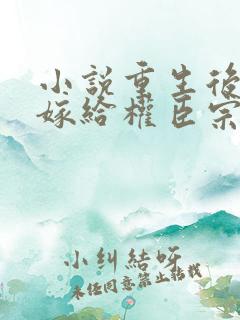 小說重生後
嫁給權臣宗
小糾結呀
未經同意禁止轉載